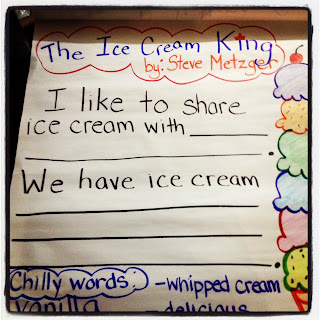 The Ice Cream King
by: Steve Metzger
I like to share
ice cream with ______
______.
We have ice cream
______
______
______.
Chilly words: -whipped cream
vanilla -delicious